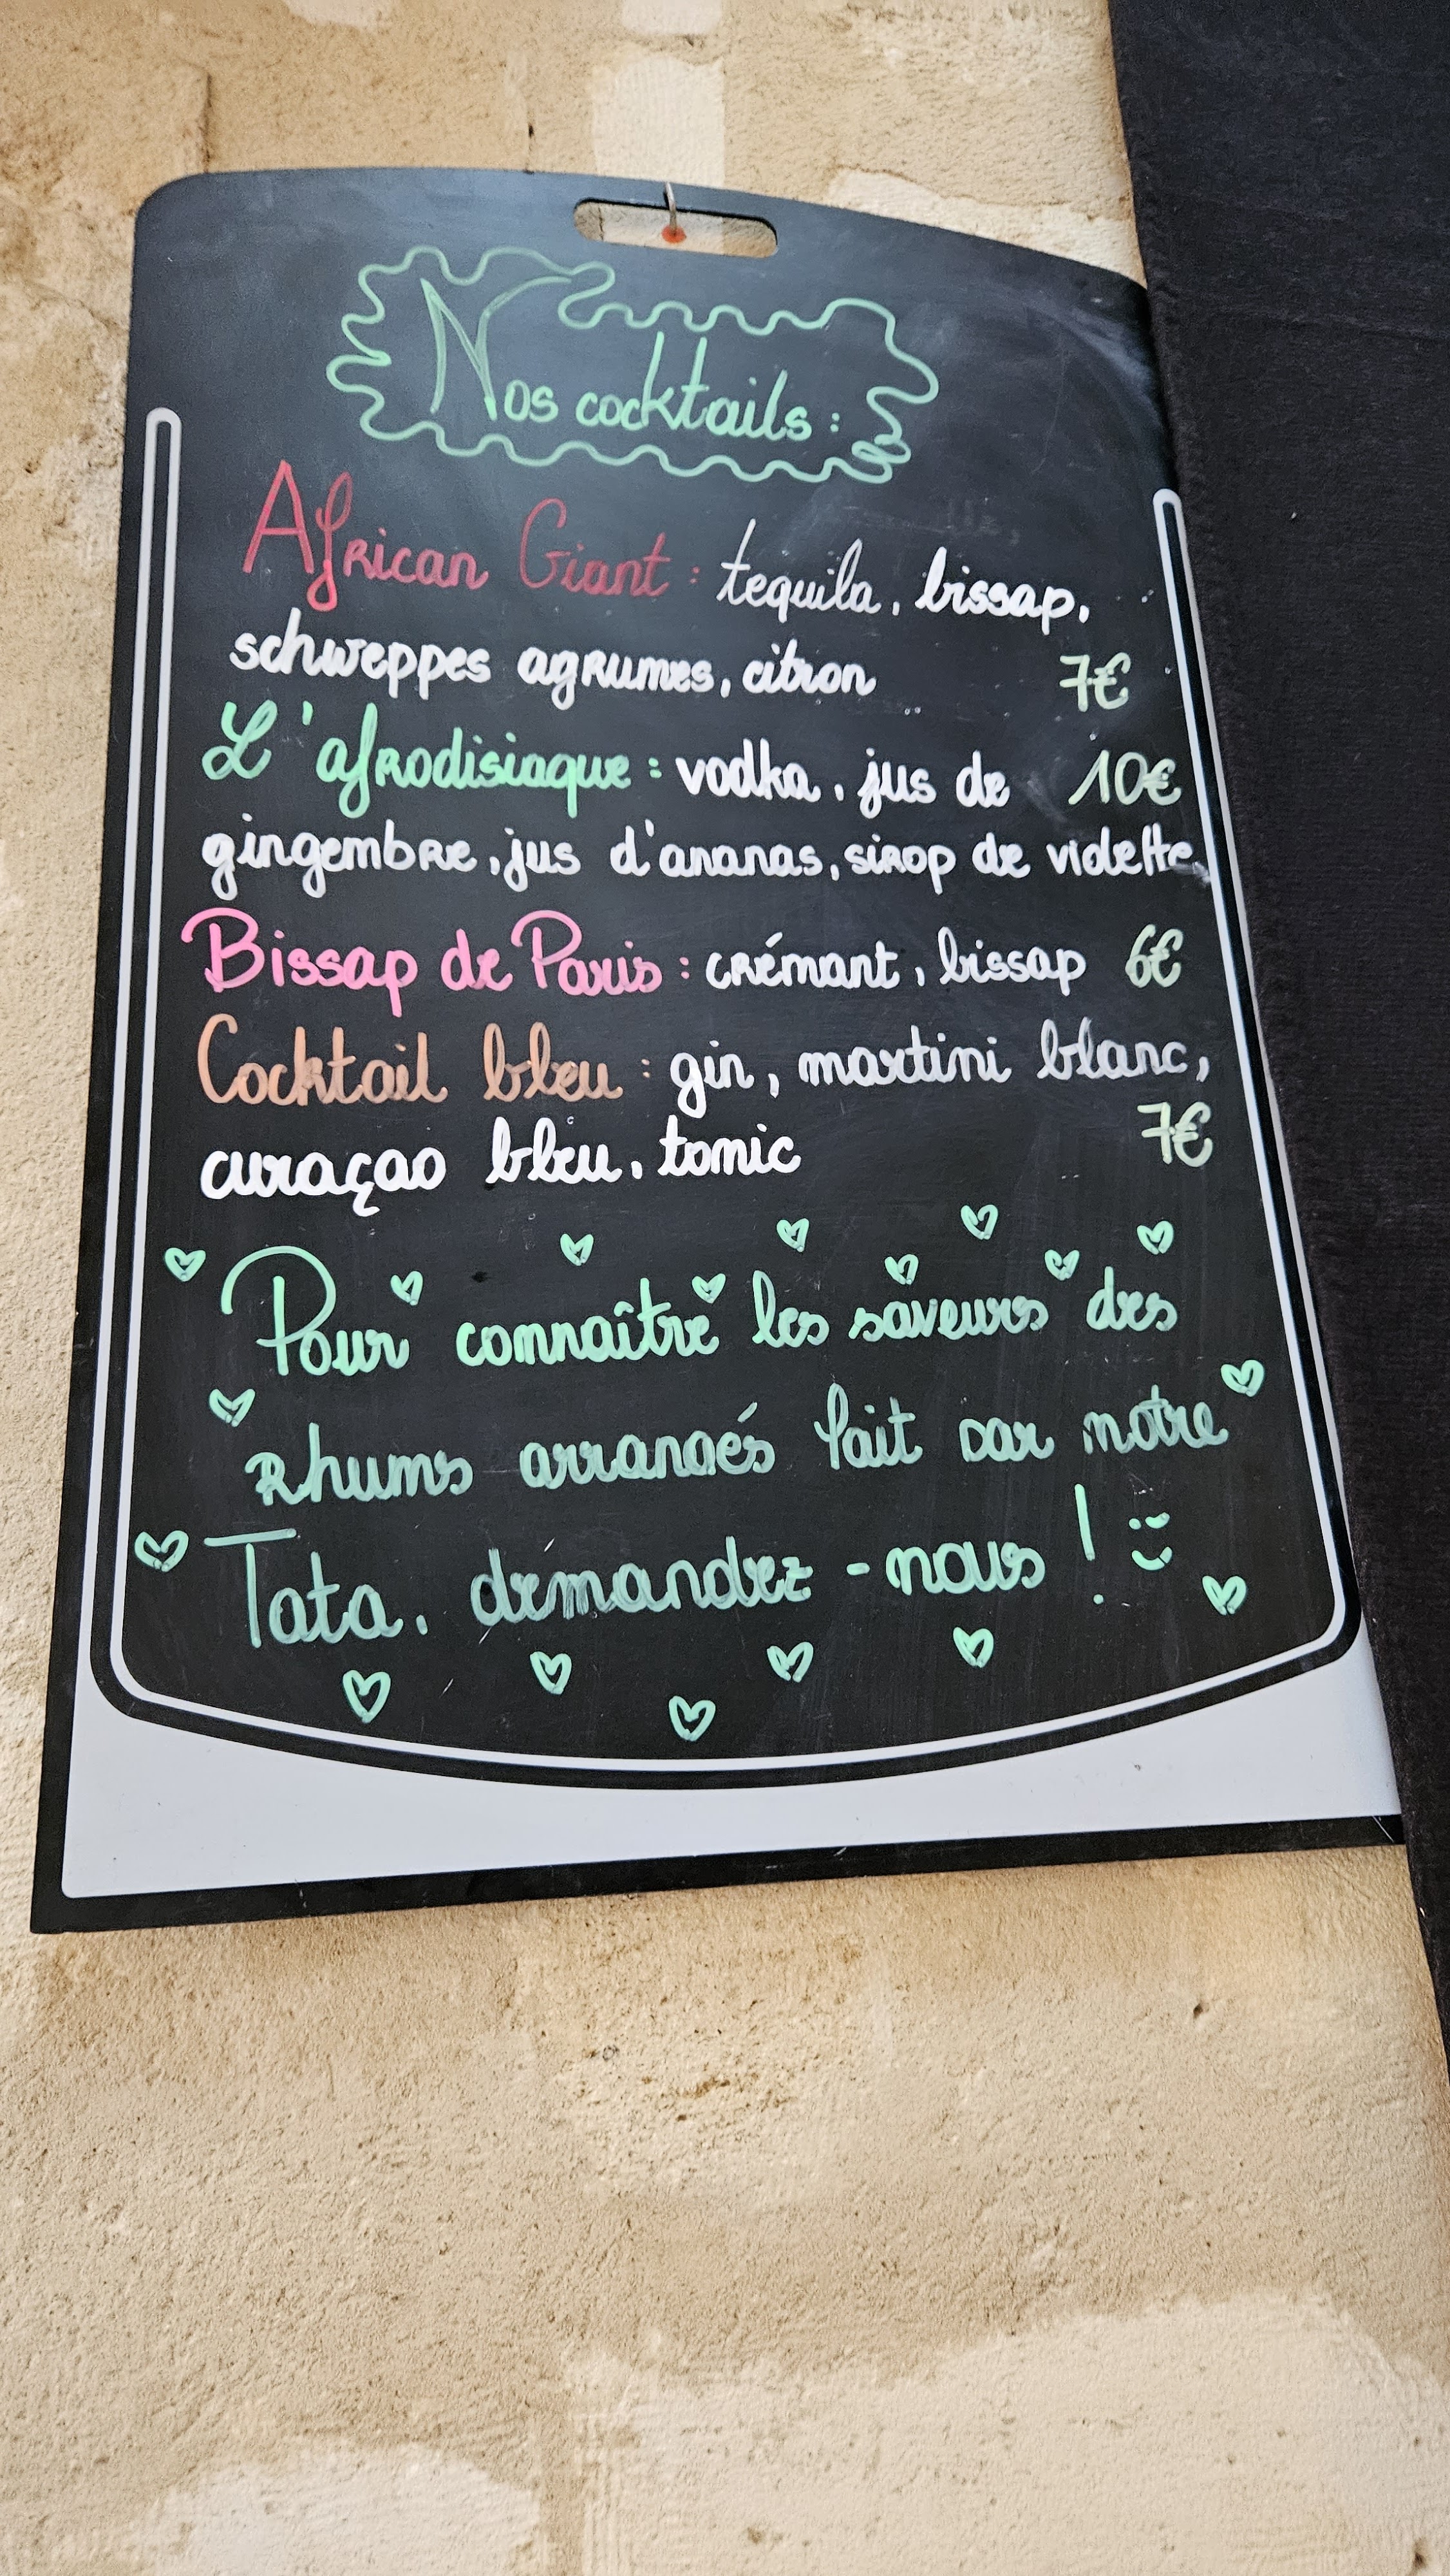 Nos cocktails :
African Giant : tequila, bissap,
schweppes agrumes, citron 7€
L'afrodisiaque : vodka, jus de 10€
gingembre, jus d'ananas, sirop de violette
Bissap de Paris : crémant, bissap 6€
Cocktail bleu : gin, martini blanc,
curaçao bleu, tonic 7€
Pour connaître les saveurs des
rhums arrangés fait par notre
Tata, demandez-nous !